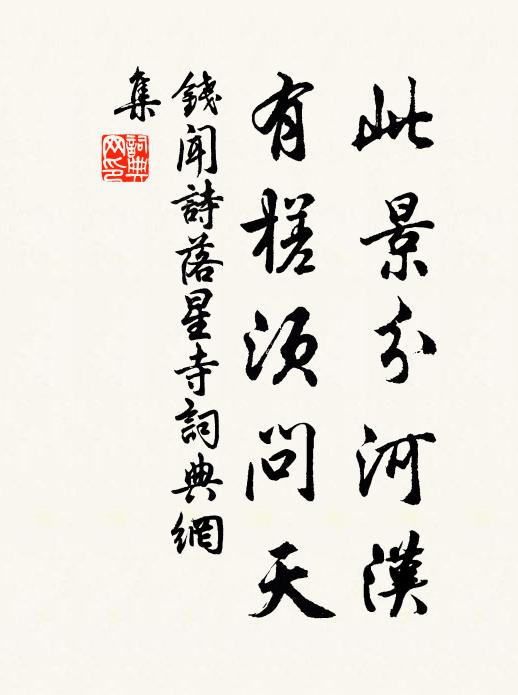 此景分河漢
有槎須問天
錢聞詩落星寺詞典網
集
詞典
網印